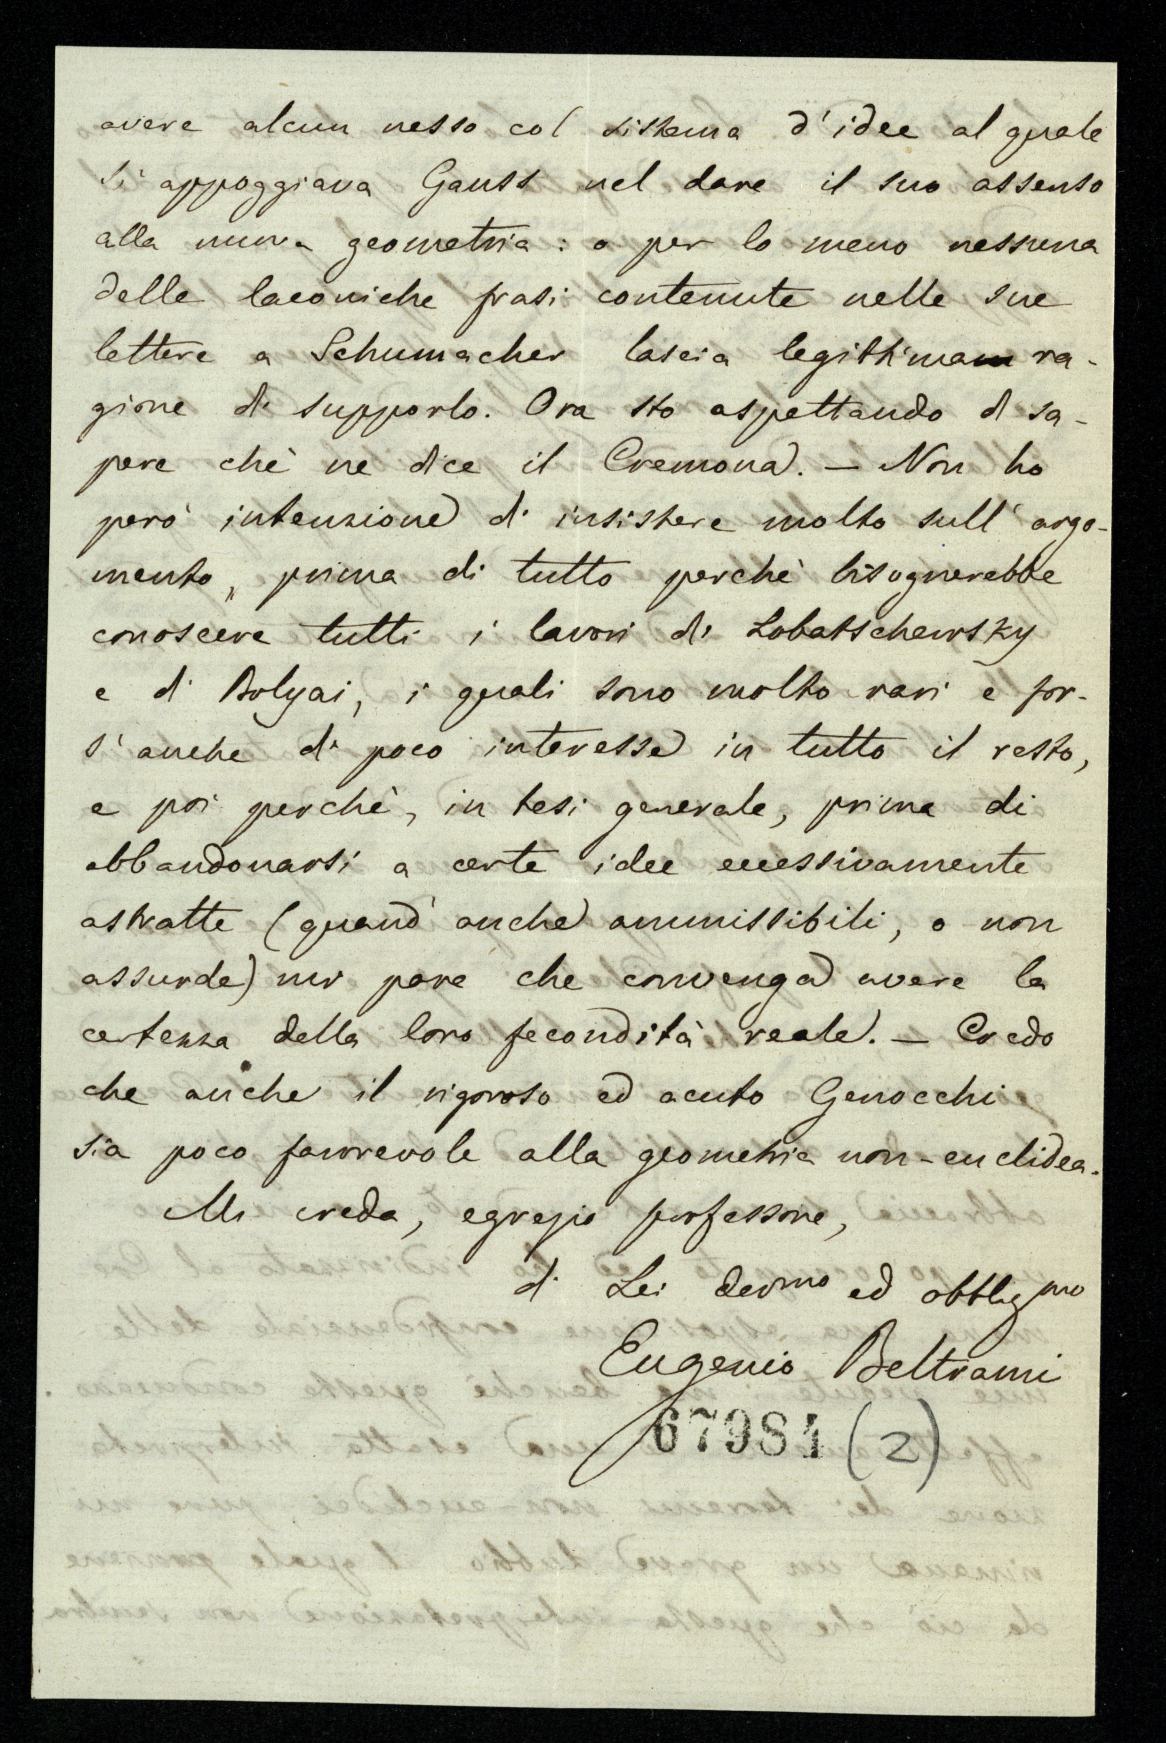 avere alcun nesso col sistema d'idee al quale
si appoggiava Gauss nel dare il suo assenso
alla nuova geometria: o per lo meno nessuna
delle laconiche frasi contenute nelle sue
lettere a Schumacher lascia legittima ra-
gione di supporlo. Ora sto aspettando di sa-
pere chè ne dice il Cremona. — Non ho
però intenzione di insistere molto sull'argo-
mento, prima di tutto perchè bisognerebbe
conoscere tutti i lavori di Lobatschewsky
e di Bolyai, i quali sono molto rari e for-
s'anche di poco interesse in tutto il resto,
e poi perchè, in tesi generale, prima di
abbandonarsi a certe idee eccessivamente
astratte (quand'anche ammissibili, o non
assurde) mi pare che convenga avere la
certezza della loro fecondità reale. — Credo
che anche il rigoroso ed acuto Genocchi
sia poco favorevole alla geometria non-euclidea.
Mi creda, egregio professore,
di Lei devmo ed obbligmo
Eugenio Beltrami
67984 (2)